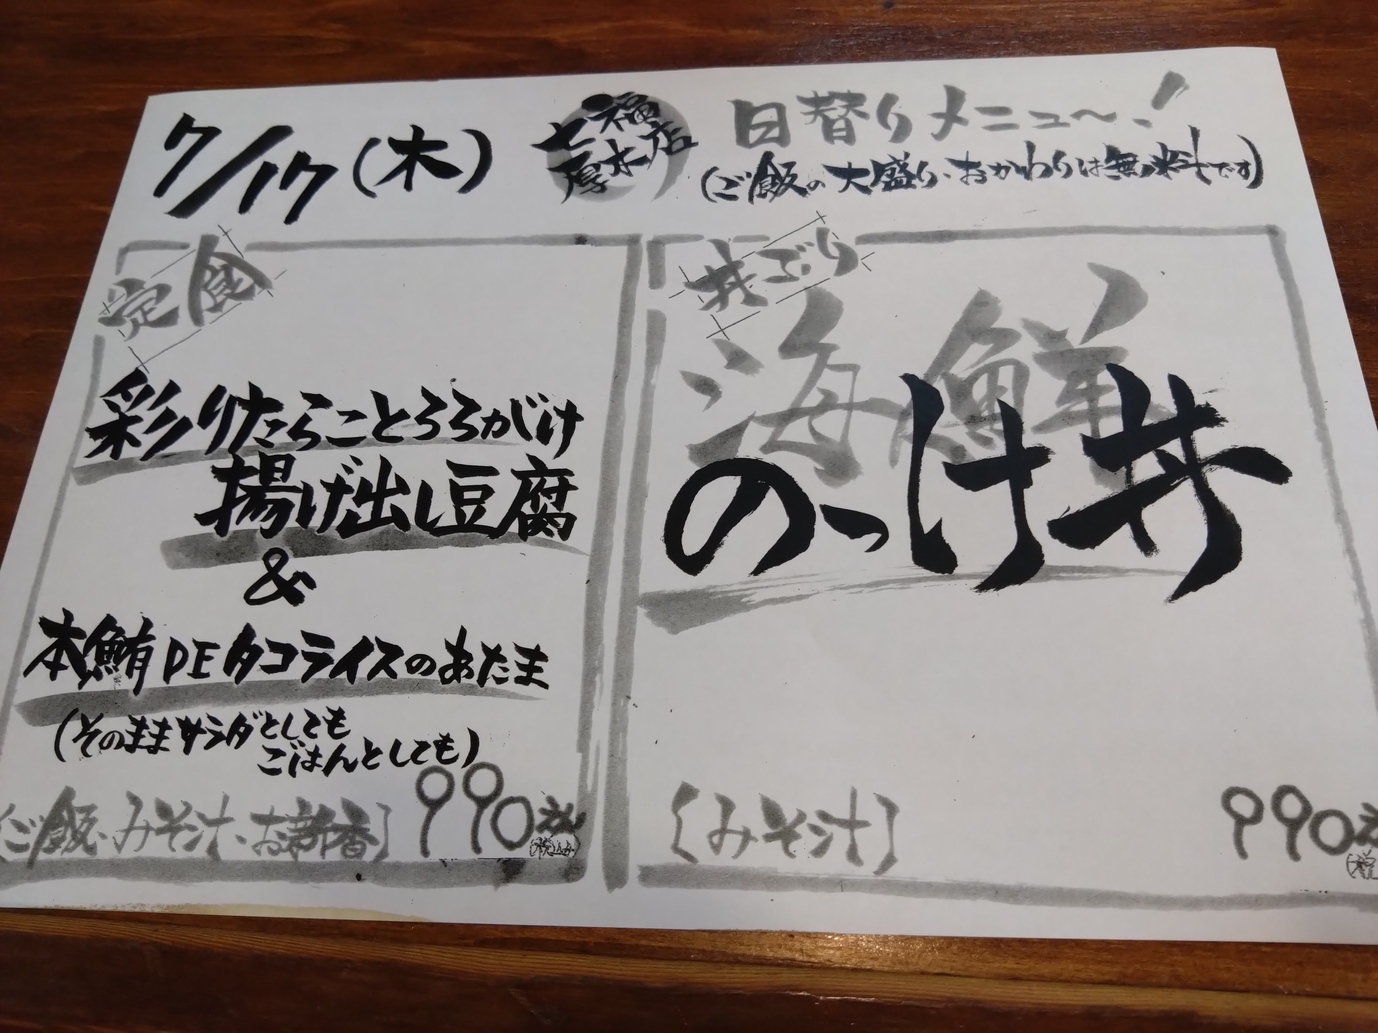 7/17(木)
七福
厚木店
日替りメニュー!
(ご飯の大盛り、おかわりは無料です)
定食
彩りたらことろろがけ
揚げ出し豆腐
&
本鮪DEタコライスのあたま
(そのままサラダとしても
ごはんとしても)
[ご飯、みそ汁、お新香]
990円
(税込み)
丼ぶり
海鮮
のっけ丼
[みそ汁]
990円
(税